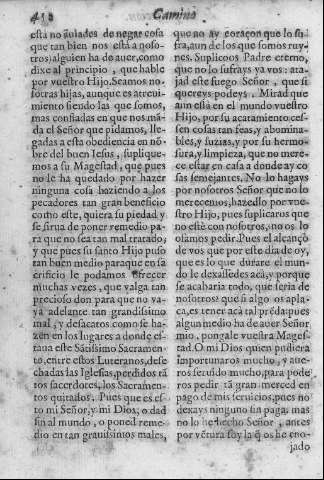 Camino
está no auiades de negar cosa
que tan bien nos está a nosotros;
tros; alguien ha de auer, como
dixe al principio, que hable
por vuestro Hijo. Seamos nosotras
sotras hijas, aunque es atreuimiento
miento siendo las que somos,
mas confiadas en que nos mãda
da el Señor que pidamos, llegadas
gadas a esta obediencia en nõbre
bre del buen Iesus, supliquemos
mos a su Magestad, que pues
no le ha quedado por hazer
ninguna cosa haziendo a los
pecadores tan gran beneficio
como este, quiera su piedad y
se sirua de poner remedio para
ra que no sea tan mal tratado,
y que pues su santo Hijo puso
tan buen medio paraque en sacrificio
crificio le podamos ofrecer
muchas vezes, que valga tan
precioso don para que no vaya
ya adelante tan grandissimo
mal, y desacatos como se hazen
zen en los lugares a donde estaua
taua este Sãtissimo Sacramento,
to, entre estos Luteranos, desechadas
chadas las Iglesias, perdidos tãtos
tos sacerdotes, los Sacramentos
tos quitados. Pues que es esto
to mi Señor, y mi Dios, o dad
fin al mundo, o poned remedio
dio en tan grauissimos males,
que no ay coraçon que lo sufra,
fra, aun de los que somos ruynes.
nes. Suplicoos Padre eterno,
que no lo sufrays ya vos: atajad
jad este fuego Señor, que si
quereys podeys. Mirad que
aun está en el mundo vuestro
Hijo, por su acatamiento cessen
sen cosas tan feas, y abominables,
bles, y suzias, y por su hermosura,
sura, y limpieza, que no merece
ce estar en casa a donde ay cosas
sas semejantes. No lo hagays
por nosotros Señor que no lo
merecemos, hazedlo por vuestro
tro Hijo, pues suplicaros que
no esté con nosotros, no os lo
osamos pedir. Pues el alcançò
de vos que por este dia de oy,
que es lo que durare el mundo
do le dexassedes acá, y porque
se acabaria todo, que seria de
nosotros? que si algo os aplaca,
ca, es tener acá tal prẽda: pues
algun medio ha de auer Señor
mio, pongale vuestra Magestad.
tad. O mi Dios quien pudiera
importunaros mucho, y aueros
ros seruido mucho, para poderos
ros pedir tã gran merced en
pago de mis seruicios, pues no
dexays ninguno sin paga, mas
no lo he hecho Señor, antes
por vẽtura soy la q̃ os he enojado
jado